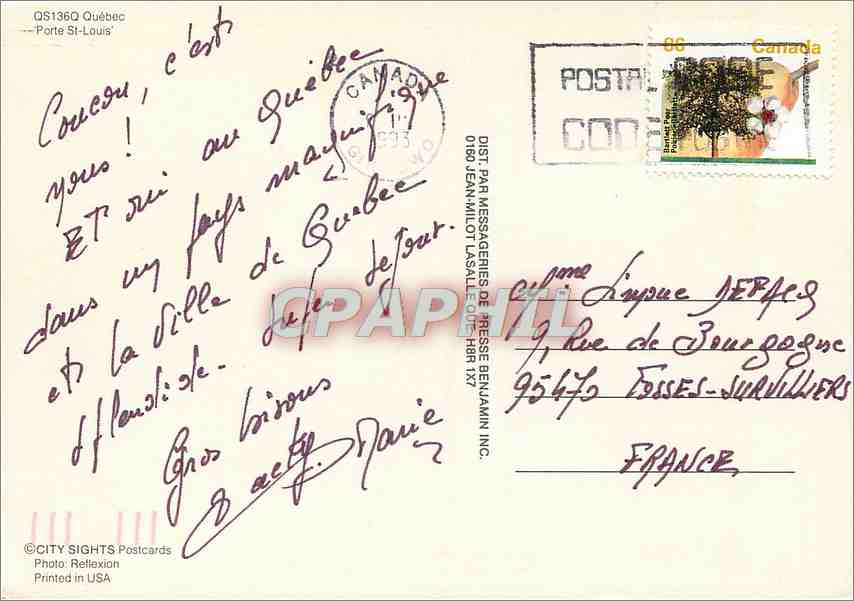 QS136Q Québec
'Porte St-Louis'
Coucou, c'est
nous!
Et oui au Québec
dans un pays magnifique
et la Ville de Québec
splendide. super séjour.
Gros bisous
Marie
©CITY SIGHTS Postcards
Photo: Reflexion
Printed in USA
DIST. PAR MESSAGERIES DE PRESSE BENJAMIN INC.
0160 JEAN-MILOT LASALLE QUE. H8R 1X7
CANADA
1993
POSTAL CODE
CODE
86 Canada
CPAPHIL
Mme
9, Rue de Bourgogne
95470 FOSSES-SURVILLIERS
FRANCE